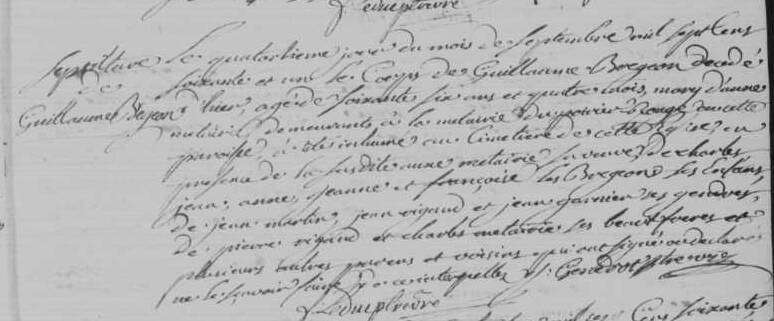 Le quatorzieme jour du mois de Septembre mil Sept Cens
Sepulture
de
Guillaume Bejeon
Soixante et un le Corps de Guillaume Bregeon decedé
hier, agé de Soixante Six ans et quatre mois, mary d'anne
metairie demeurants à la metairie du poirier Rouge de cette
paroisse, à eté inhumé au Cimetiere de cette Eglise, en
presence de la Susdite anne metairie Sa veuve, de charles
jean, anne, jeanne et françoise les Bregeons Ses Enfans,
de jean martin, jean rigaud et jean garnier Ses gendres,
de pierre rigaud et charles metairie Ses beaux freres et
plusieurs autres parens et voisins qui ont Signé ou declaré
ne le Sçavoir faire de ce interpellés